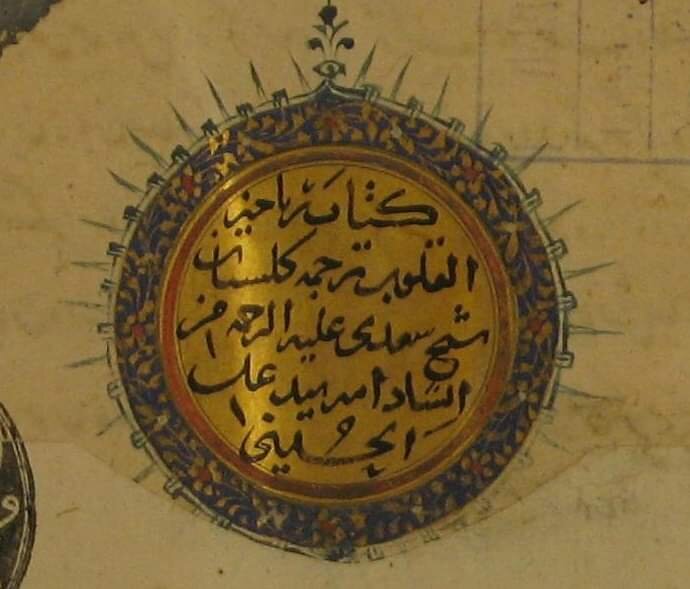 كتاب رياحين
القلوب ترجمه كلستان
شيخ سعدى عليه الرحمه من
انشاد امير سيد على
الحسينى